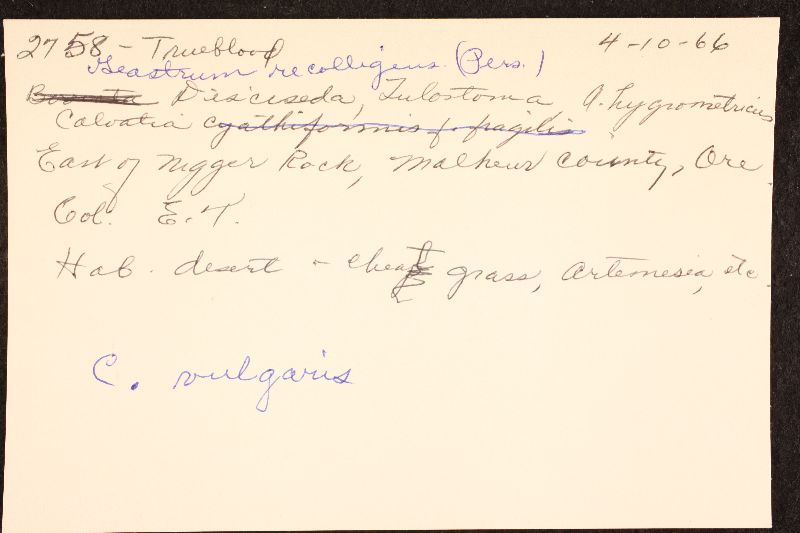 2758 - Trueblood 4-10-66
Geastrum recolligens (Pers.)
Bovista Disciseda, Tulostoma A. hygrometricus
Calvatia cyathiformis f. fragilis
East of Nigger Rock, Malheur County, Ore.
Col. E.T.
Hab. desert - cheat grass, Artemesia, etc.
C. vulgaris